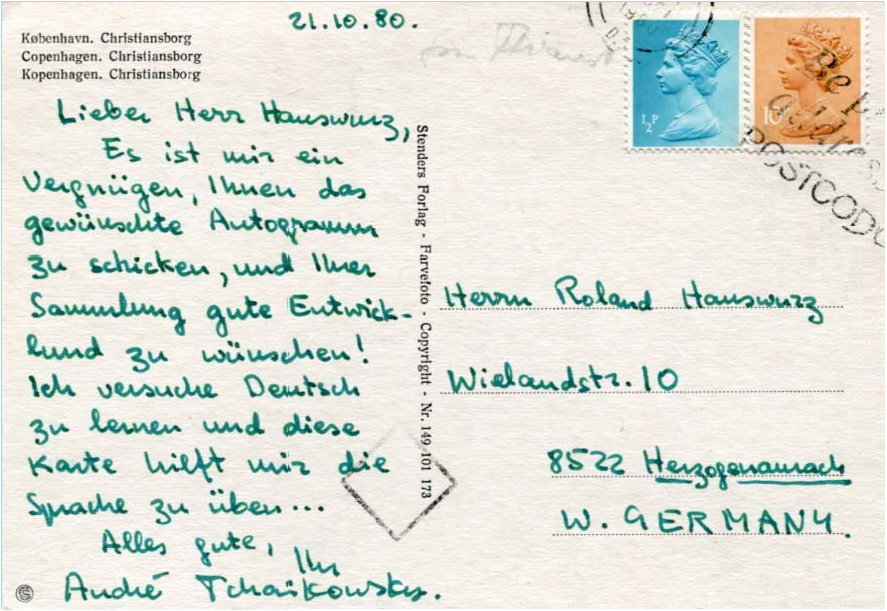 21.10.80.
København. Christiansborg
Copenhagen. Christiansborg
Kopenhagen. Christiansborg
Lieber Herr Hauswurz,
Es ist mir ein
Vergnügen, Ihnen das
gewünschte Autogramm
zu schicken, und Ihrer
Sammlung gute Entwick-
lund zu wünschen!
Ich versuche Deutsch
zu lernen und diese
Karte hilft mir die
Sprache zu üben...
Alles gute,
Ihr
André Tchaikowsky.
Stenders Forlag - Farvefoto - Copyright - Nr. 149 101 173
½P
10P
Be
POSTCODE
Herrn Roland Hauswurz
Wielandstr. 10
8522 Herzogenaurach
W. GERMANY.